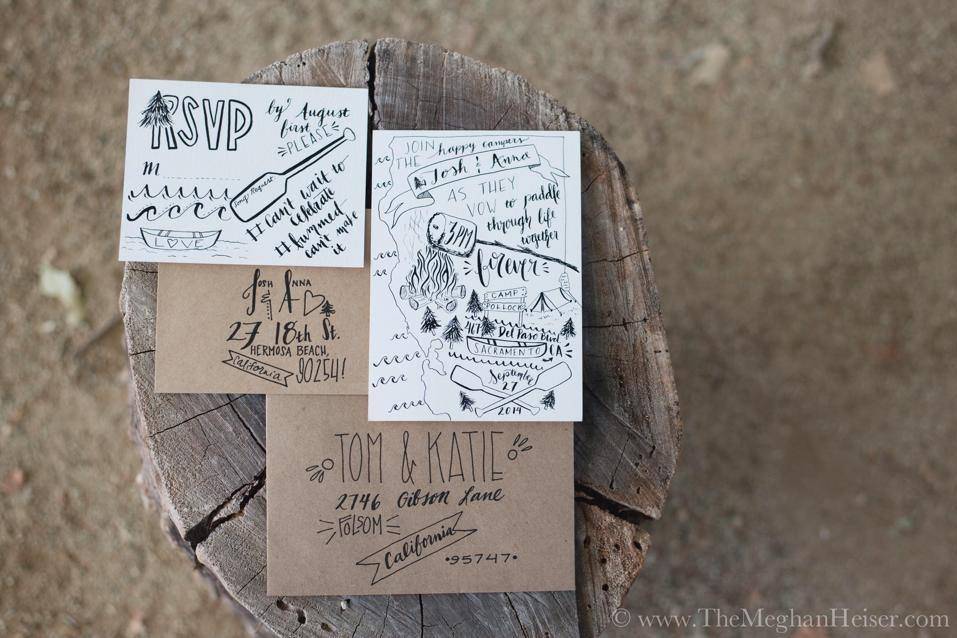 RSVP
by August
first
PLEASE
M
Song Request
I can't wait to
celebrate
I I bummed
can't make
it
LOVE
JOIN
THE happy campers
Josh & Anna
AS THEY
VOW to paddle
through life
together
3PM
forever
CAMP
POLLOCK
Del Paso Blvd
SACRAMENTO CA
September
27
2014
JOSH & ANNA
27 18th St.
HERMOSA BEACH,
California 90254!
TOM & KATIE
2746 Gibson Lane
FOLSOM
California
•95747•
© www.TheMeghanHeiser.com